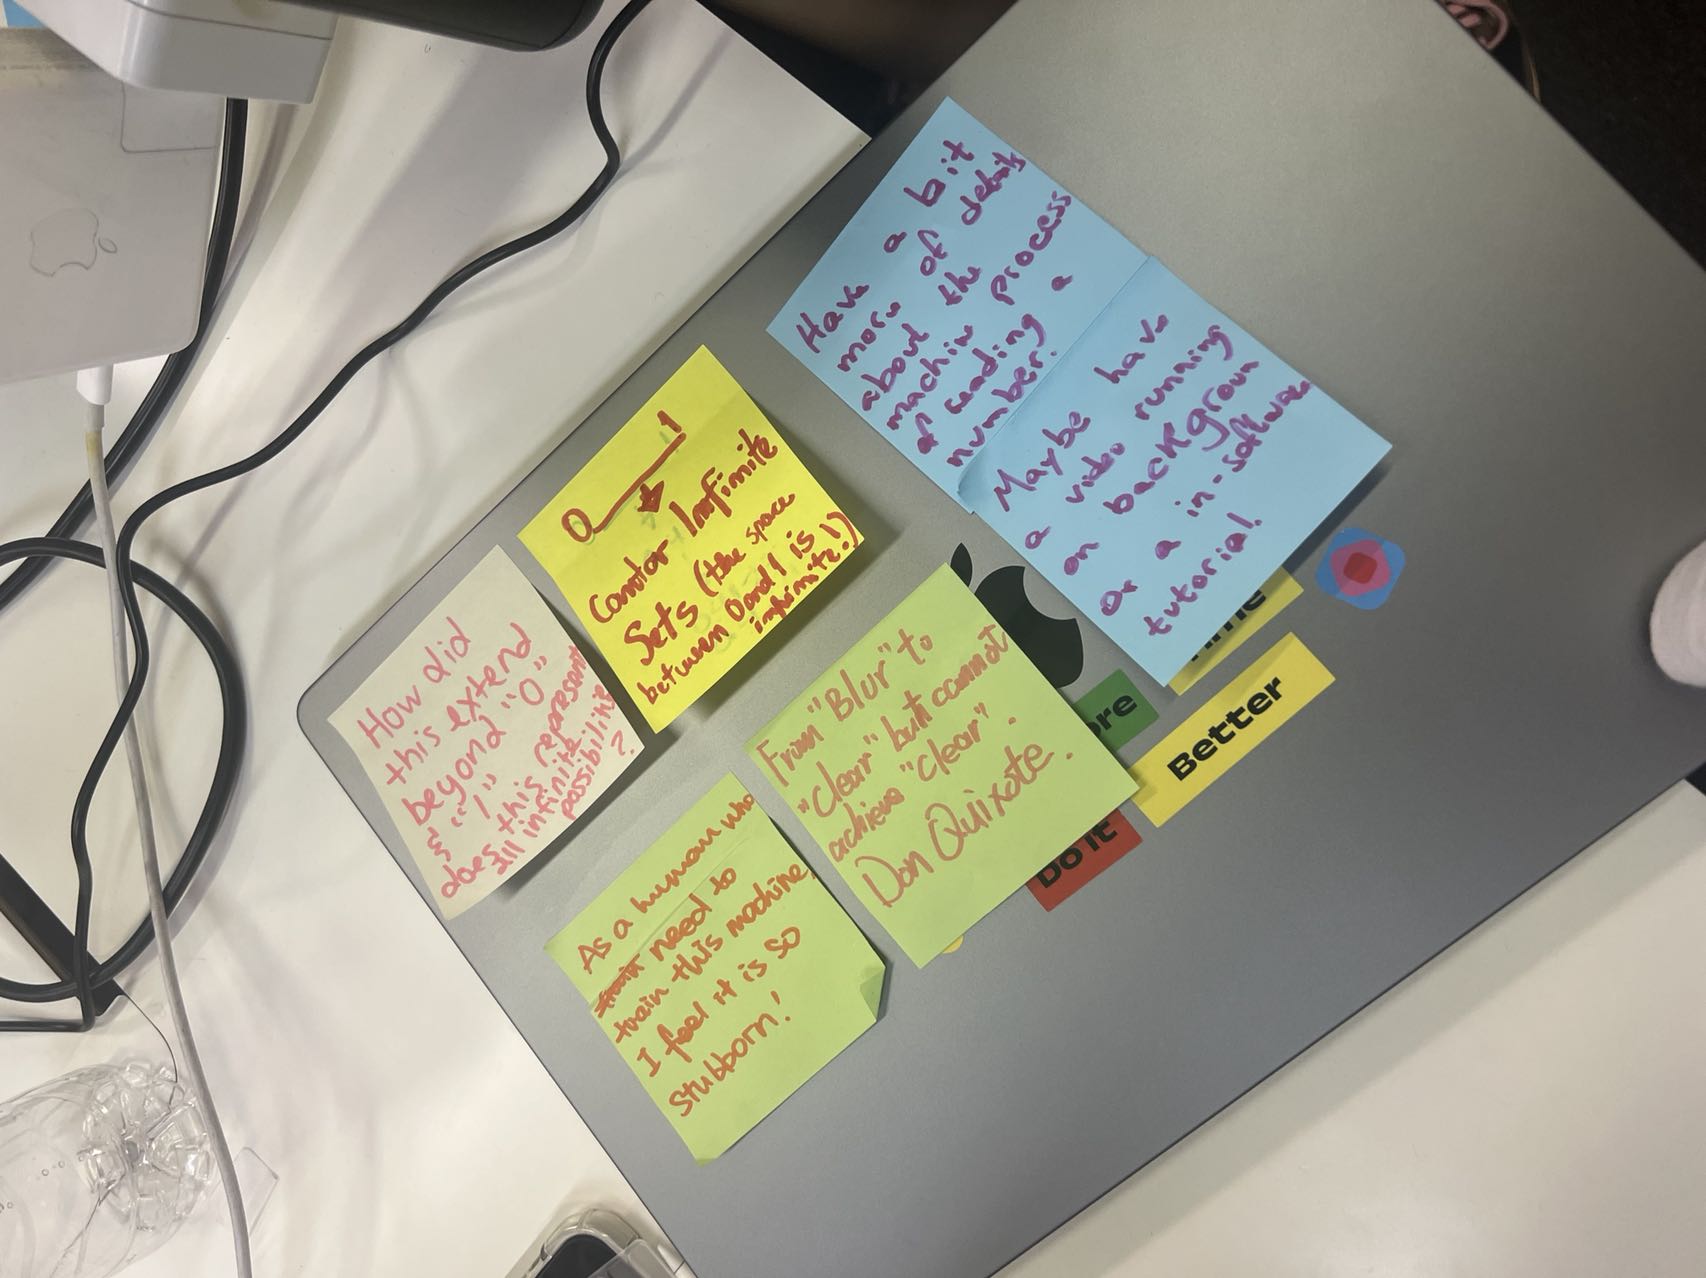 Have a bit
more of details
about the
machin process
of reading a
number.
Maybe have
a video running
on backgroun
Or a in-software
tutorial.
0 1
Cantor Infinite
Sets (the space
between 0 and 1 is
infinite!)
How did
this extend
beyond "0"
& "1"
does this represent
all infinite
possibilities
?
From "Blur" to
"Clear" but cannot
achieve "clear".
Don Quixote.
As a human who
train need to
train this machine,
I feel it is so
stubborn!
Better
Do it